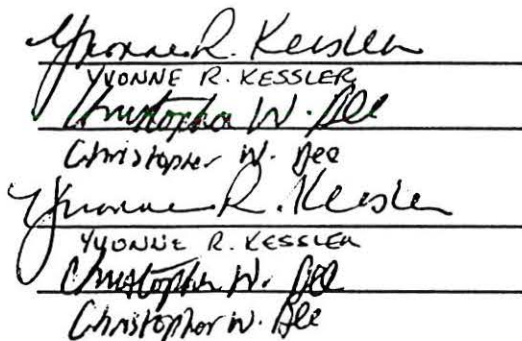 Yvonne R. Kessler
YVONNE R. KESSLER
Christopher W. Dee
Christopher W. Dee
Yvonne R. Kessler
YVONNE R. KESSLER
Christopher W. Dee
Christopher W. Dee